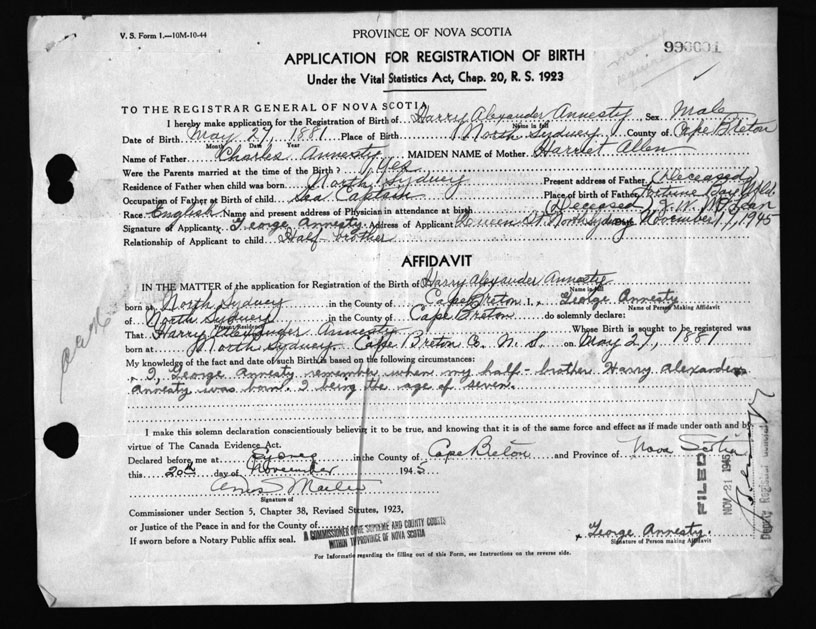 V. S. Form 1.—10M-10-44
PROVINCE OF NOVA SCOTIA
APPLICATION FOR REGISTRATION OF BIRTH
Under the Vital Statistics Act, Chap. 20, R. S. 1923
TO THE REGISTRAR GENERAL OF NOVA SCOTIA
I hereby make application for the Registration of Birth of Harry Alexander Annesty Sex Male
Name in full
Date of Birth May 27, 1881 Place of Birth North Sydney County of Cape Breton
Month Date Year
Name of Father Charles Annesty MAIDEN NAME of Mother Harriet Allen
Were the Parents married at the time of the Birth? Yes
Residence of Father when child was born North Sydney Present address of Father (Deceased)
Occupation of Father at Birth of Child Sea Captain Place of birth of Father Fortune Bay Nfld.
Race English Name and present address of Physician in attendance at birth (Deceased) J. W. McLean
Signature of Applicant x George Annesty Address of Applicant Queen St. North Sydney November 1, 1945
Relationship of Applicant to child Half-brother
AFFIDAVIT
IN THE MATTER of the application for Registration of the Birth of Harry Alexander Annesty
Name in full
born at North Sydney in the County of Cape Breton I, x George Annesty
Name of Person Making Affidavit
of North Sydney in the County of Cape Breton do solemnly declare:
Present Residence
That Harry Alexander Annesty Whose Birth is sought to be registered was
born at North Sydney Cape Breton Co. N. S. on May 27, 1881
My knowledge of the fact and date of such Birth is based on the following circumstances:
I, George Annesty remember when my half-brother Harry Alexander
Annesty was born. I being the age of seven.
I make this solemn declaration conscientiously believing it to be true, and knowing that it is of the same force and effect as if made under oath and by
virtue of The Canada Evidence Act.
Declared before me at Sydney in the County of Cape Breton and Province of Nova Scotia
this 20th day of November 1945
Signature of
Commissioner under Section 5, Chapter 38, Revised Statutes, 1923,
or Justice of the Peace in and for the County of
A COMMISSIONER OF THE SUPREME AND COUNTY COURTS
WITHIN THE PROVINCE OF NOVA SCOTIA
If sworn before a Notary Public affix seal.
x George Annesty
Signature of Person making Affidavit
For Information regarding the filling out of this Form, see Instructions on the reverse side.
FILED
NOV 21 1945
Deputy Registrar General